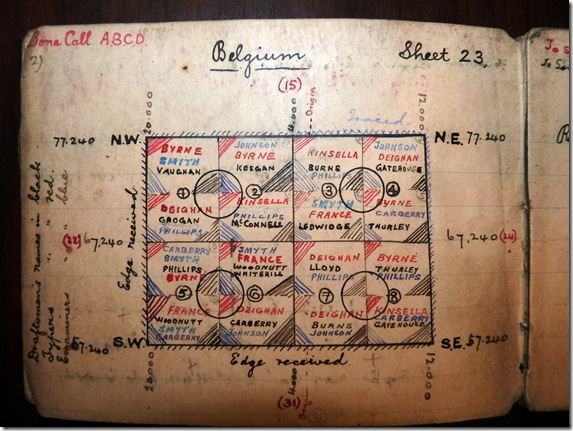 Bone Call ABCD
2)
Belgium
Sheet 23,
(15)
20.000
4.000
Origin
12.000
Traced
77.240 N.W.
N.E. 77.240
BYRNE
SMYTH
VAUGHAN
JOHNSON
BYRNE
KEEGAN
KINSELLA
BURNS
PHILLIPS
JOHNSON
DEIGHAN
GATEHOUSE
1
2
3
4
DEIGHAN
GROGAN
PHILLIPS
KINSELLA
PHILLIPS
McCONNELL
SMYTH
FRANCE
LEDWIDGE
BYRNE
CARBERRY
THURLEY
(22) 67.240
67,240 (24)
Edge received
CARBERRY
SMYTH
PHILLIPS
BYRNE
SMYTH
FRANCE
WOODNUTT
WHITEHILL
DEIGHAN
LLOYD
PHILLIPS
BYRNE
THURLEY
PHILLIPS
5
6
7
8
FRANCE
WOODNUTT
SMYTH
CARBERRY
DEIGHAN
CARBERRY
JOHNSON
DEIGHAN
BURNS
JOHNSON
KINSELLA
CARBERRY
GATEHOUSE
57.240 S.W.
S.E. 57.240
Edge received
20.000
4.000
12.000
(31)
Draftsmen's names in black
Typers " " red.
Examiners " " blue